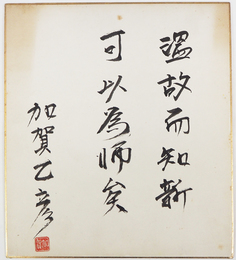 温故而知新
可以為師矣
加賀乙彦